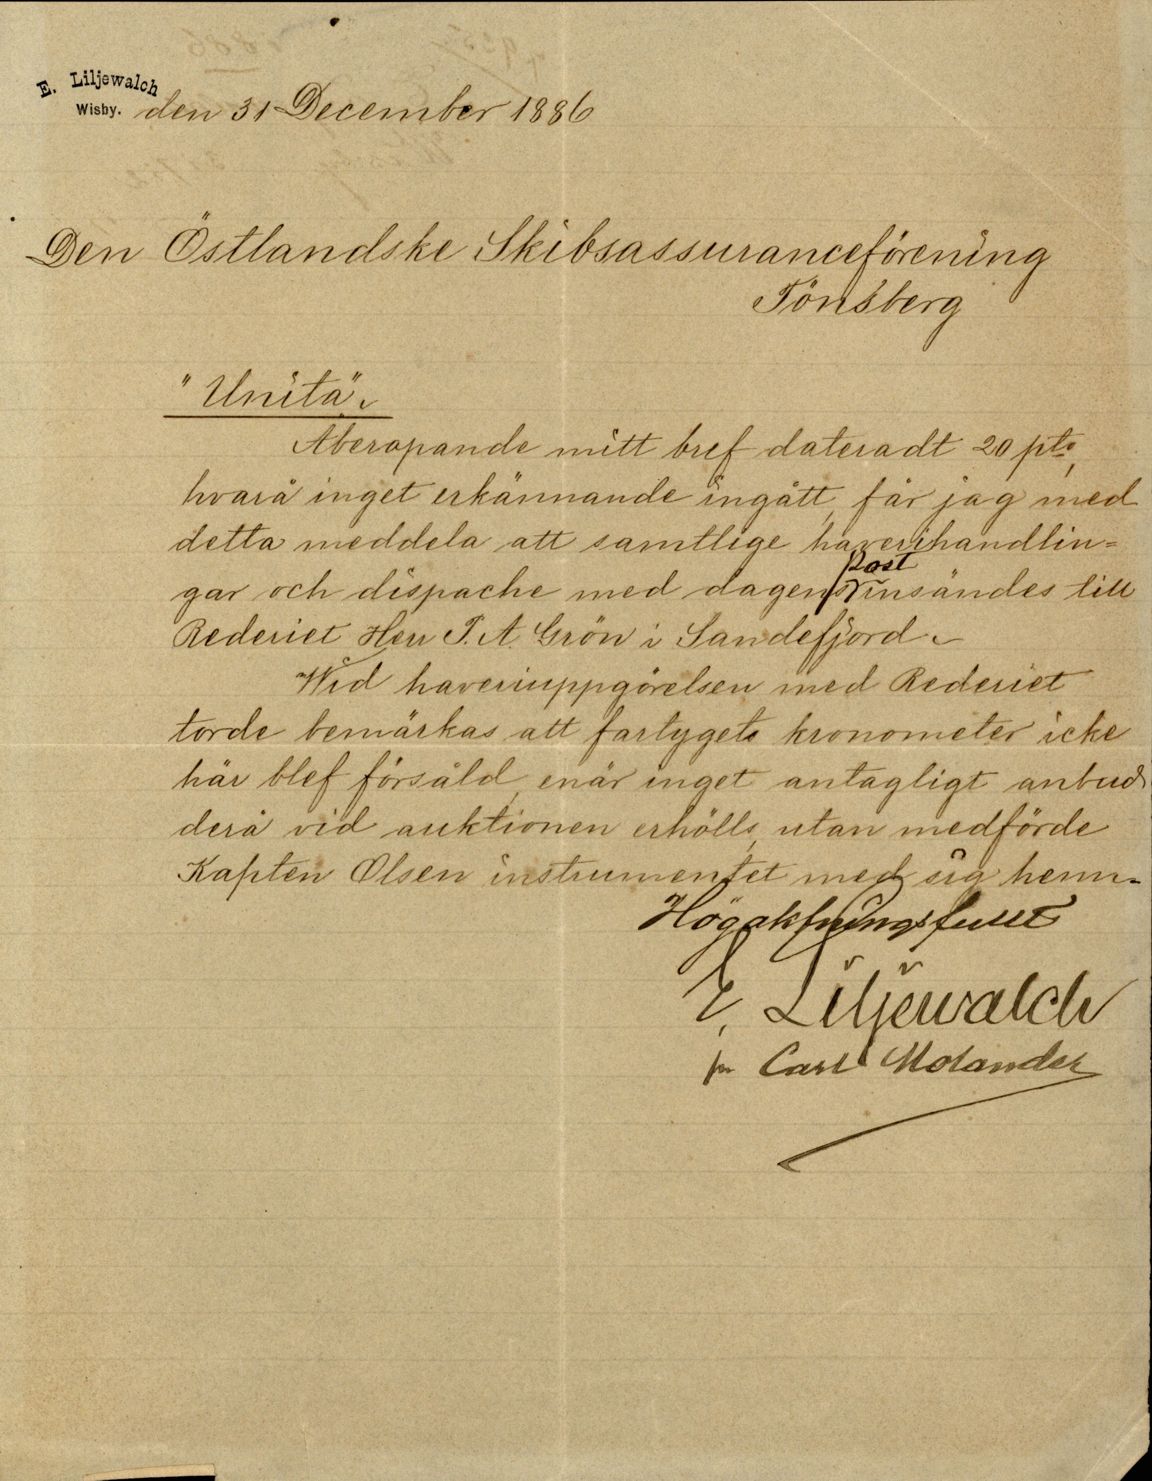 E. Liljewalch
Wisby. den 31 December 1886
Den Östlandske Skibsassuranceförening
Tönsberg
"Unita".
Åberopande mitt bref dateradt 20 pto,
hvarå inget erkännande ingått, får jag med
detta meddela att samtlige haverihandlin=
gar och dispache med dagens Post insändes till
Rederiet Herr P. A. Grön i Sandefjord.
Wid haveriuppgörelsen med Rederiet
torde bemärkas att fartygets kronometer icke
här blef försåld, enär inget antagligt anbud
derå vid auktionen erhölls, utan medförde
Kapten Olsen instrumentet med sig hem.
Högaktningsfullt
E. Liljewalch
pr Carl Molander